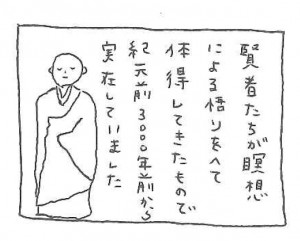 賢者たちが瞑想
による悟りをへて
体得してきたもので
紀元前3000年前から
実在していました